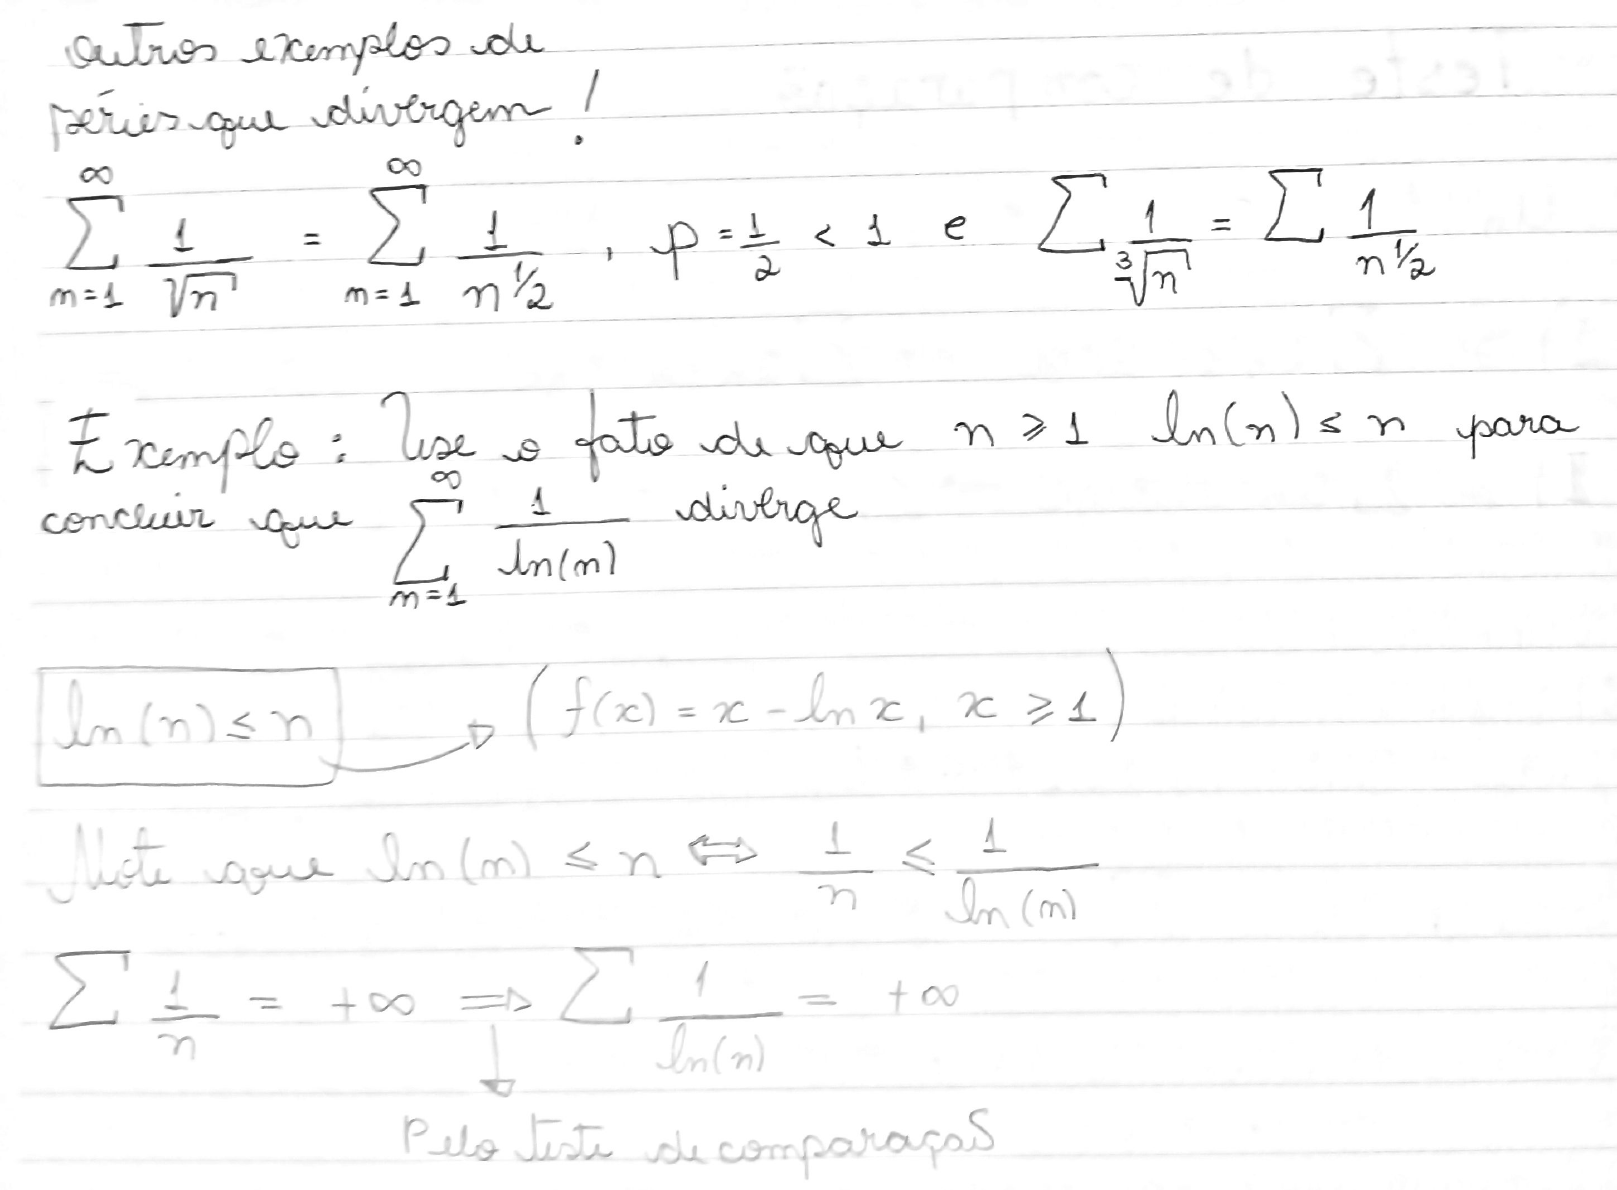 outros exemplos de
séries que divergem!
∞ ∑ n=1 1/√n = ∞ ∑ n=1 1/n^1/2 , p = 1/2 < 1 e ∑ 1/∛n = ∑ 1/n^1/2
Exemplo: Use o fato de que n ≥ 1 ln(n) ≤ n para
concluir que ∞ ∑ n=1 1/ln(n) diverge
ln(n) ≤ n → (f(x) = x - ln x, x ≥ 1)
Note que ln(n) ≤ n ⇔ 1/n ≤ 1/ln(n)
∑ 1/n = +∞ ⇒ ∑ 1/ln(n) = +∞
Pelo teste de comparação